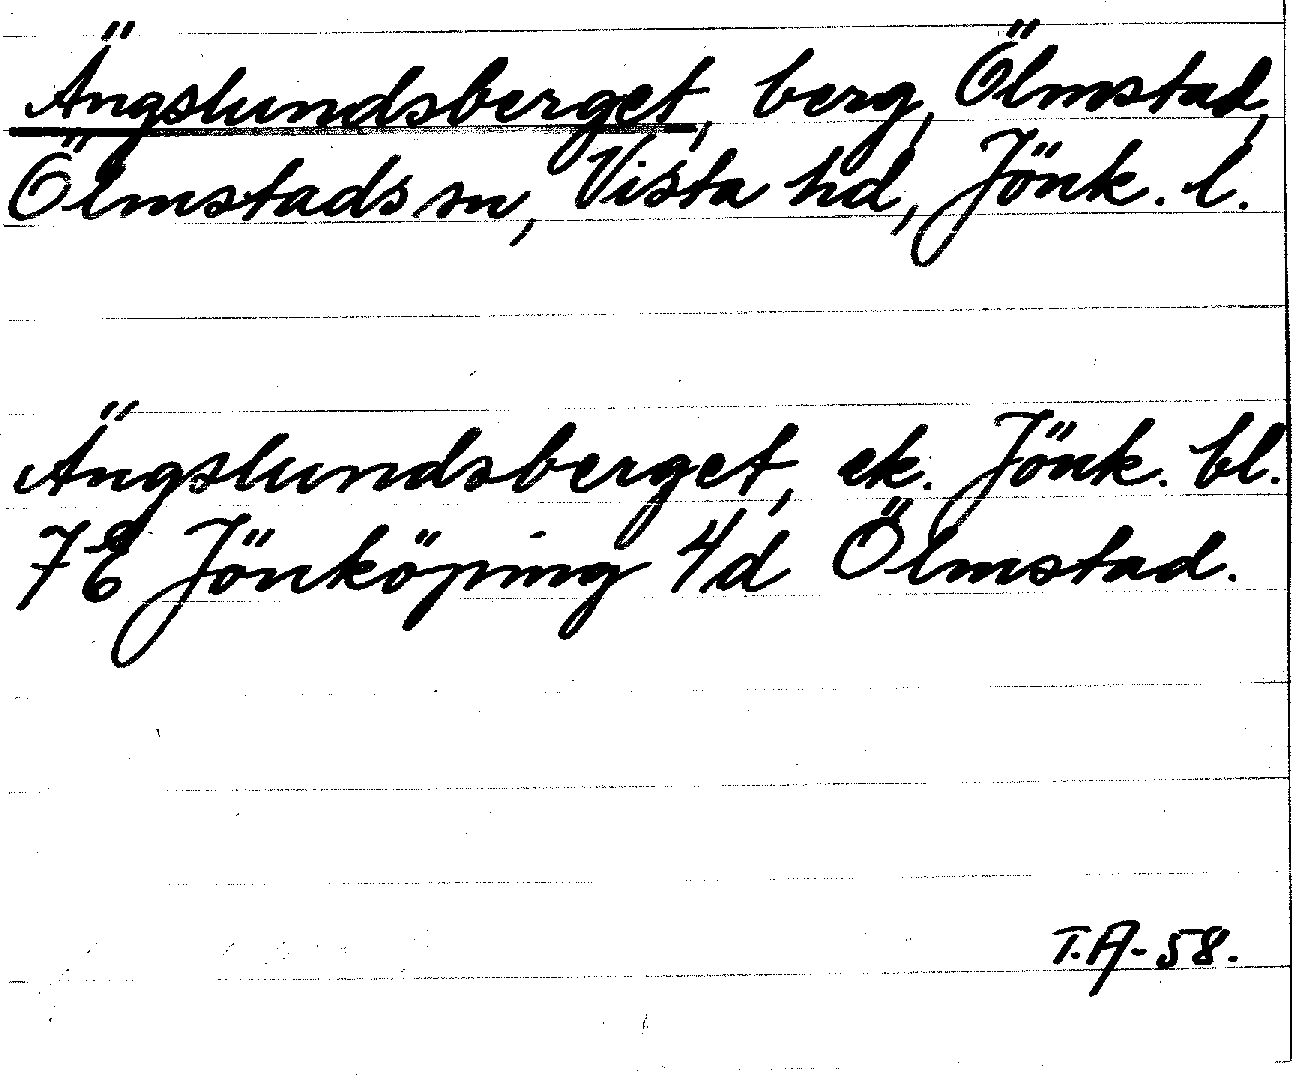 Ängslundsberget, berg, Ölmstad,
Ölmstads sn, Vista hd, Jönk. l.
Ängslundsberget, ek. Jönk. bl.
7E Jönköping 4d Ölmstad.
T.A-58.